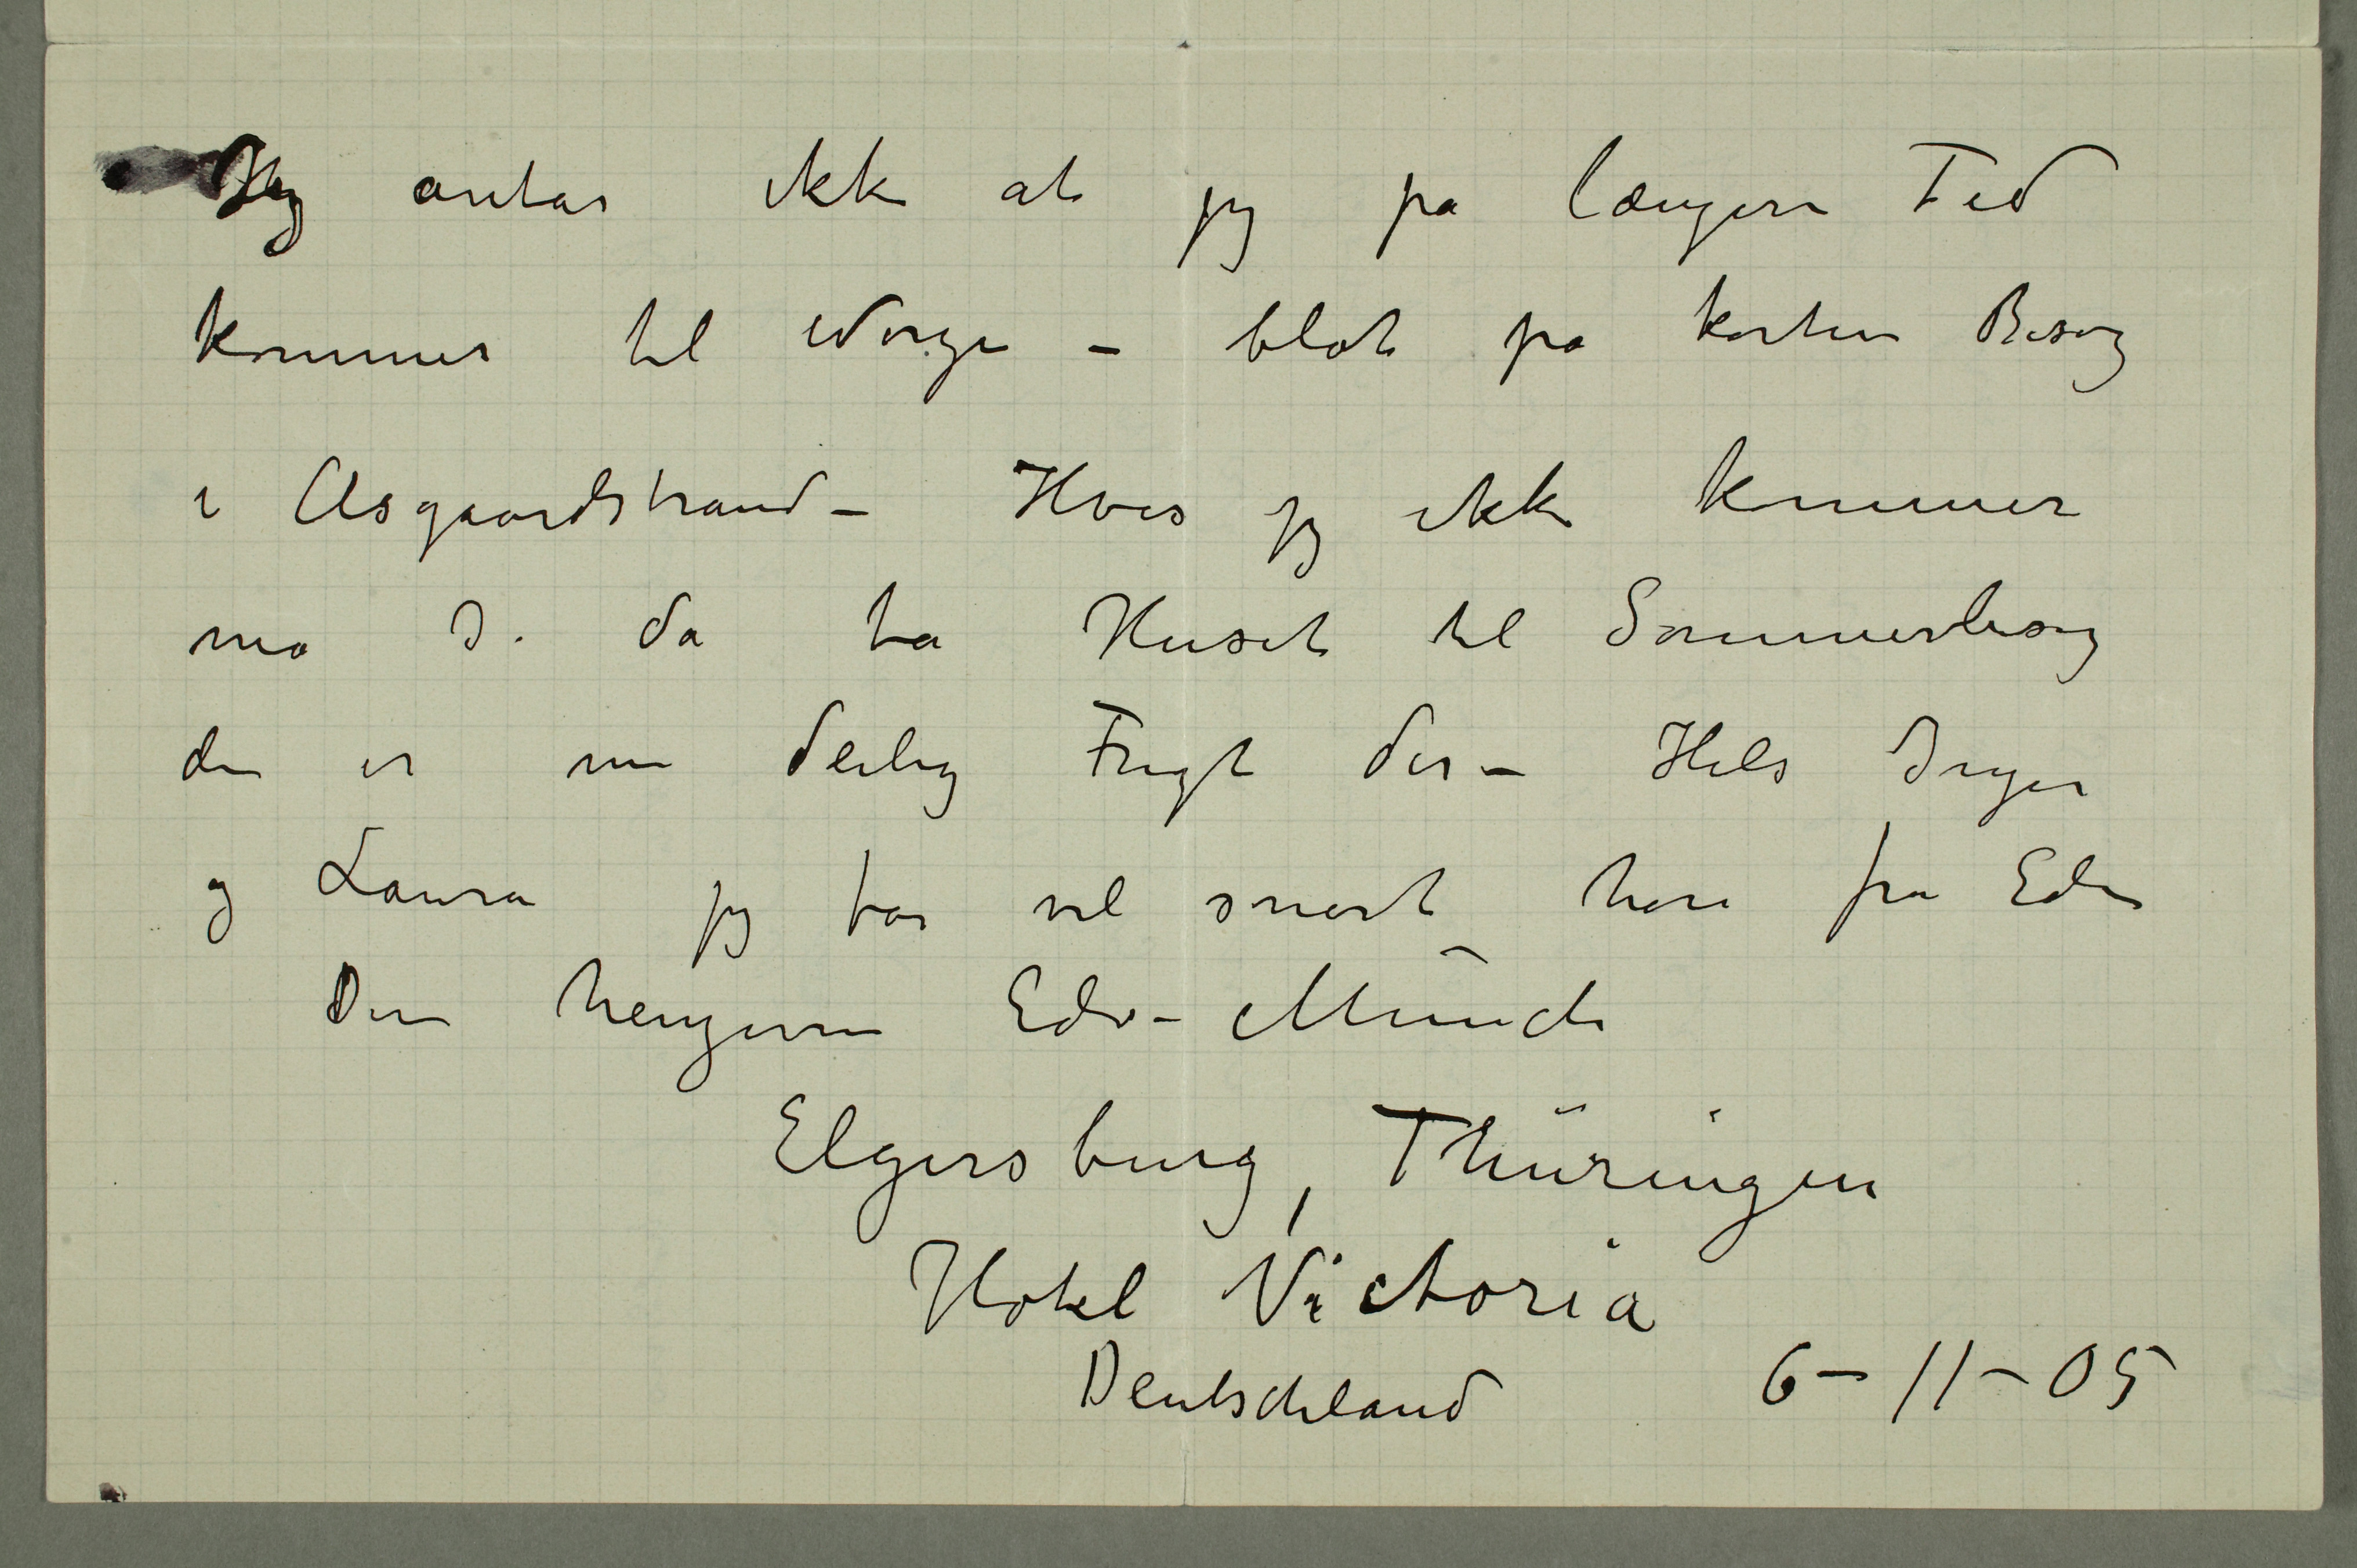 Jeg antar ikke at jeg på længere Tid
kommer til Norge – blot på korten Besøg
i Åsgaardstrand – Hvis jeg ikke kommer
må I. da ta Huset til Sommerbesøg
der er nu deilig Frugt der – Hils Inger
og Laura jeg får vel snart høre fra Eder
Din hengivne Edv – Munch
Elgersburg, Thüringen
Hotel Victoria
Deutschland 6 – 11 – 05